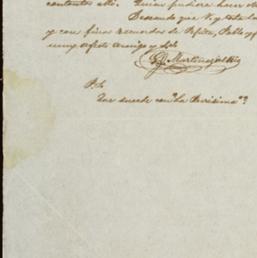 contentos allá. Quien pudiera hacer
Deseando que V. y toda
y con finos recuerdos de Pepita, Pablo y
muy afecto amigo y
Martinez del Rio
P.D.
Que sucede con "La Purisima"?